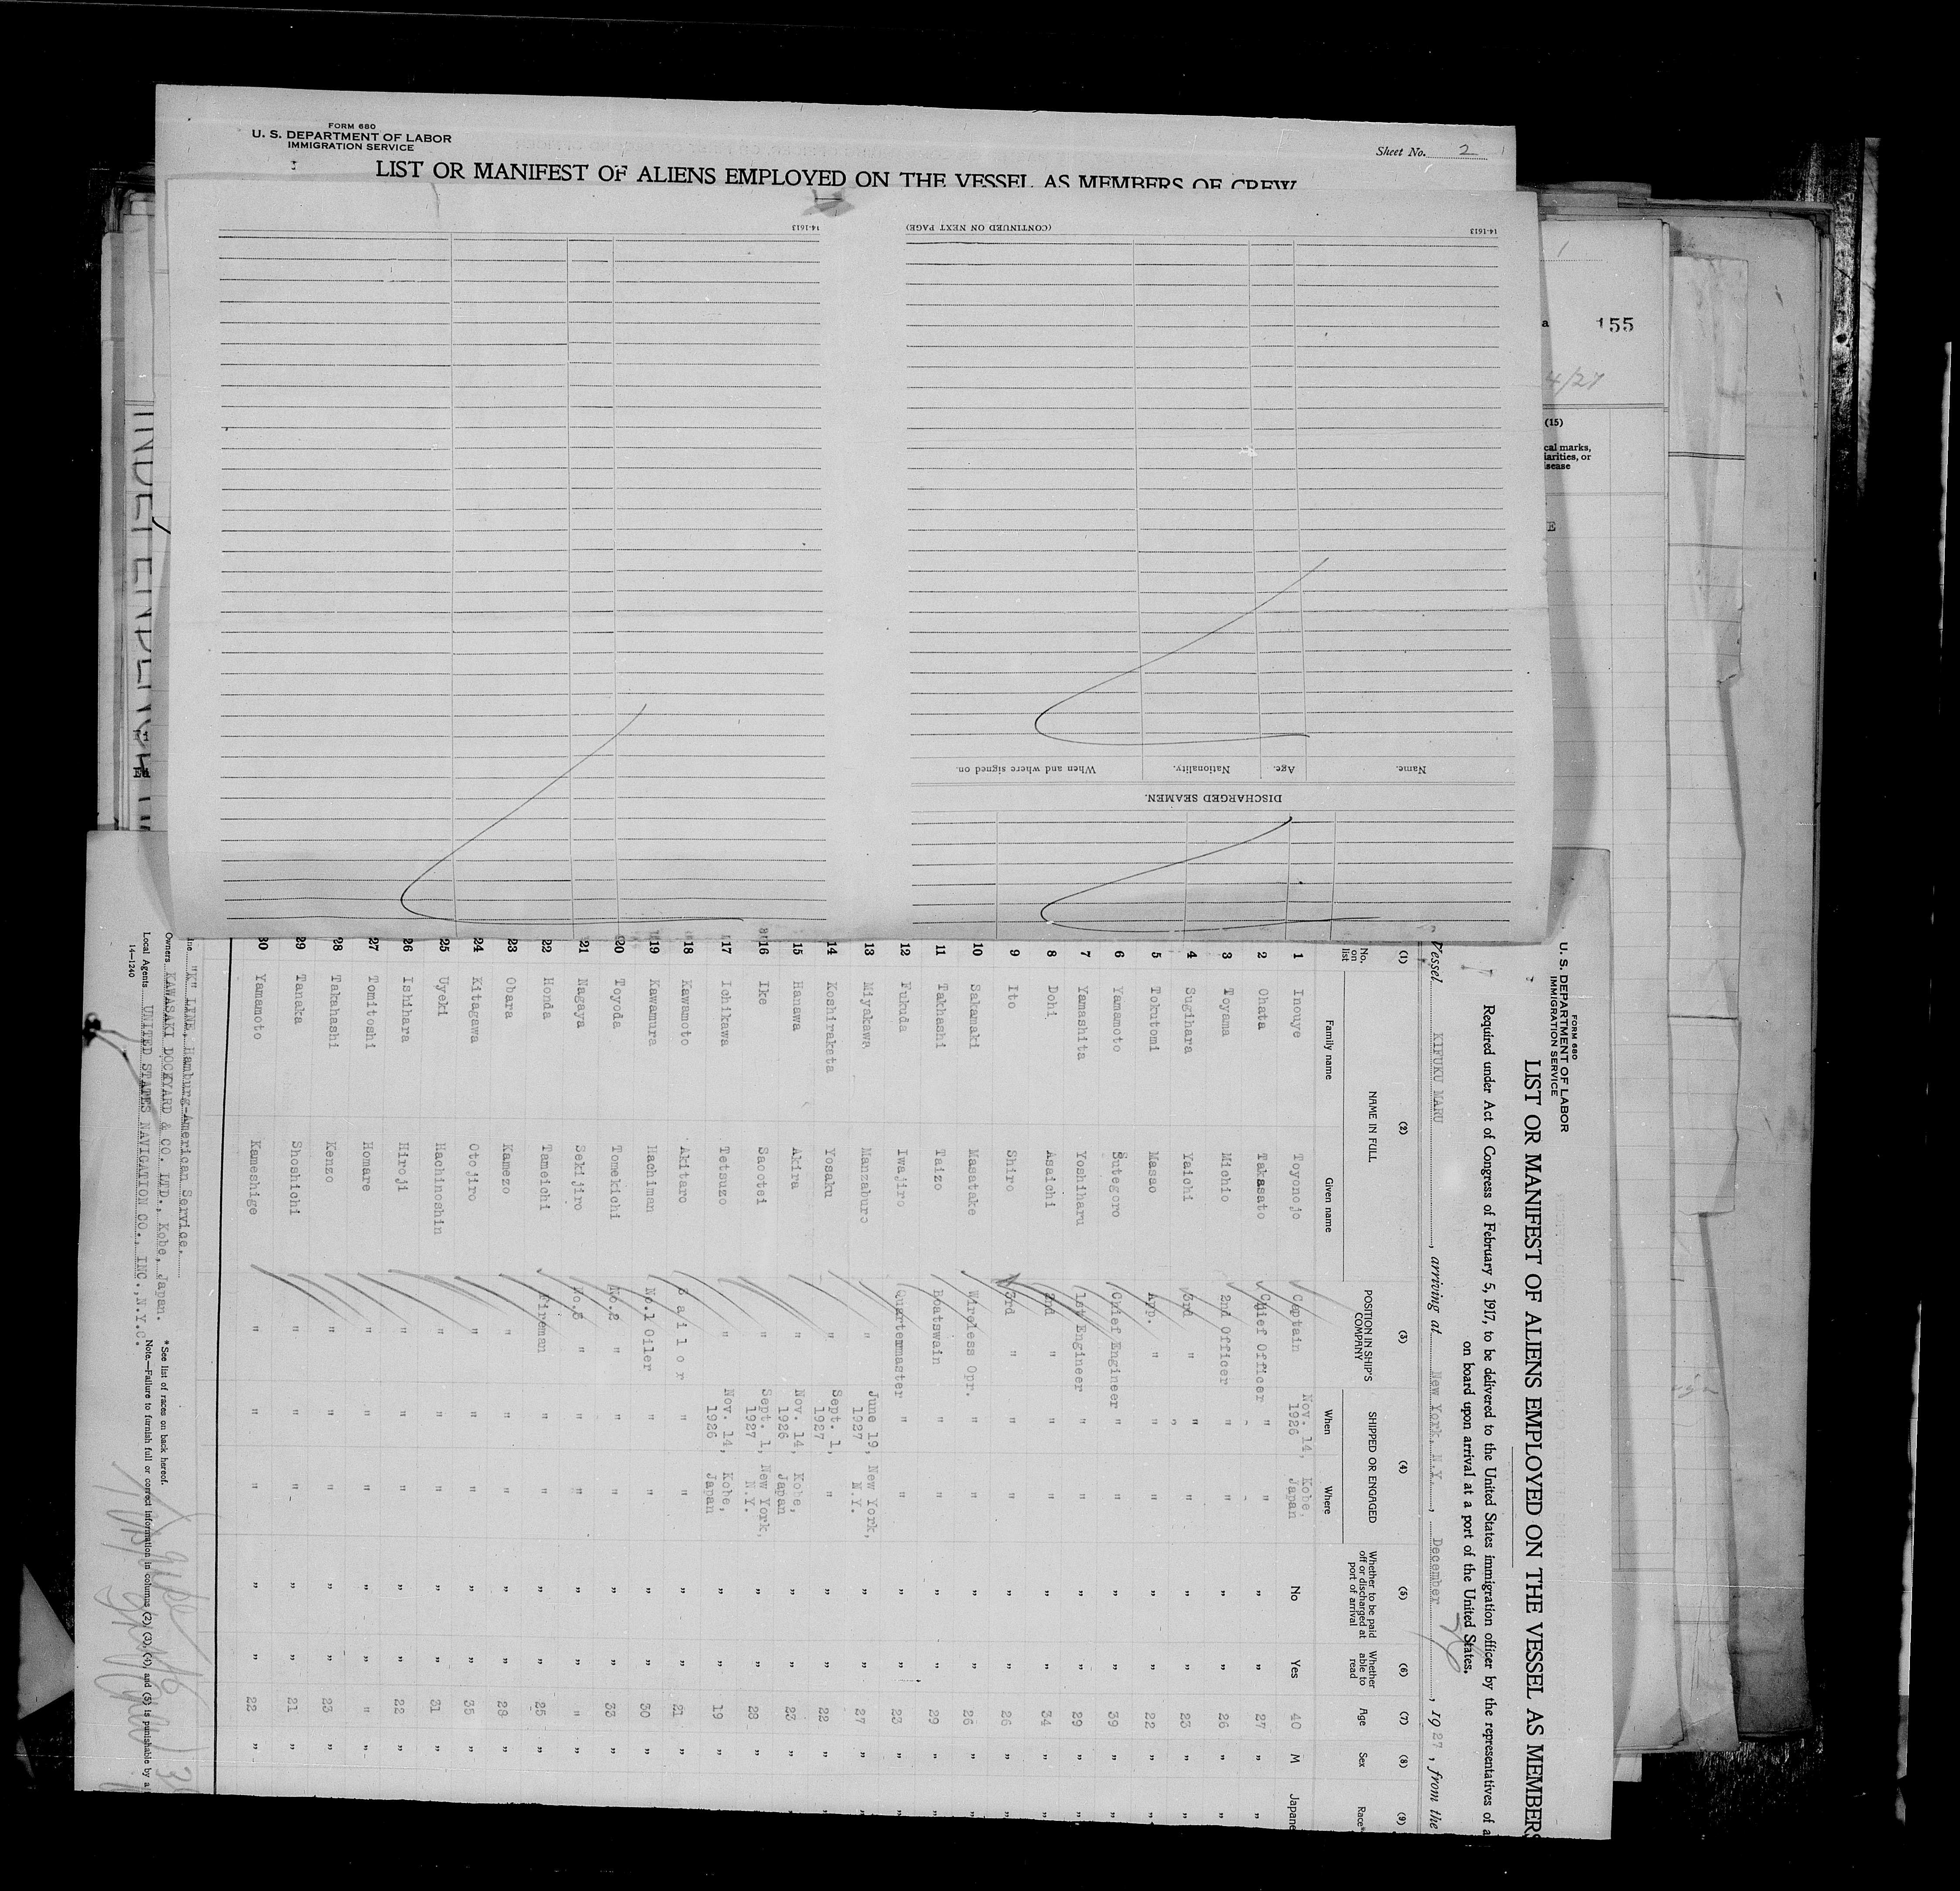 FORM 680
U. S. DEPARTMENT OF LABOR
IMMIGRATION SERVICE
Sheet No. 2
LIST OR MANIFEST OF ALIENS EMPLOYED ON THE VESSEL AS MEMBERS OF CREW
14-1613
(CONTINUED ON NEXT PAGE)
14-1613
When and where signed on.
Nationality.
Age.
Name.
DISCHARGED SEAMEN.
155
4/27
(15)
cal marks,
iarities, or
isease
FORM 680
U. S. DEPARTMENT OF LABOR
IMMIGRATION SERVICE
LIST OR MANIFEST OF ALIENS EMPLOYED ON THE VESSEL AS MEMBERS
Required under Act of Congress of February 5, 1917, to be delivered to the United States immigration officer by the representatives of a
on board upon arrival at a port of the United States.
Vessel KIFUKU MARU, arriving at New York, N.Y., December, 1927, from the
(1) (2) (3) (4) (5) (6) (7) (8) (9)
No. on list NAME IN FULL POSITION IN SHIP'S COMPANY SHIPPED OR ENGAGED Whether to be paid off or discharged at port of arrival Whether able to read Age Sex Race*
Family name Given name When Where
1 Inouye Toyonojo Captain Nov. 14, 1926 Kobe, Japan No Yes 40 M Japane
2 Ohata Takasato Chief Officer " " " " 27 " "
3 Toyama Michio 2nd Officer " " " " 26 " "
4 Sugihara Yaichi 3rd " " " " " 23 " "
5 Tokutomi Masao App. " " " " " 22 " "
6 Yamamoto Sutegoro Chief Engineer " " " " 39 " "
7 Yamashita Yoshiharu 1st Engineer " " " " 29 " "
8 Dohi Asaichi 2nd " " " " " 34 " "
9 Ito Shiro 3rd " " " " " 26 " "
10 Sakamaki Masatake Wireless Opr. " " " " 26 " "
11 Takhashi Taizo Boatswain " " " " 29 " "
12 Fukuda Iwajiro Quartermaster " " " " 23 " "
13 Miyakawa Manzaburo " June 19, 1927 New York, N.Y. " " 27 " "
14 Koshirakata Yosaku " Sept. 1, 1927 " " " 22 " "
15 Hanawa Akira " Nov. 14, 1926 Kobe, Japan " " 23 " "
16 Ike Saootei " Sept. 1, 1927 New York, N.Y. " " 28 "
17 Ichikawa Tetsuzo " Nov. 14, 1926 Kobe, Japan " " 19 "
18 Kawamoto Akitaro Sailor " " " " 21 "
19 Kawamura Hachiman No.1 Oiler " " " " 30 "
20 Toyoda Tomekichi No.2 " " " " " 33 "
21 Nagaya Sekijiro No.3 " " " " " " "
22 Honda Tameichi Fireman " " " " 25 "
23 Obara Kamezo " " " " " 28 "
24 Kitagawa Otojiro " " " " " 35 "
25 Uyeki Hachinoshin " " " " " 31 "
26 Ishihara Hiroji " " " " " 22 "
27 Tomitoshi Homare " " " " " " "
28 Takahashi Kenzo " " " " " 23 "
29 Tanaka Shoshichi " " " " " 21 "
30 Yamamoto Kameshige " " " " " 22 "
ine "K" LINE, Hamburg-American Service.
Owners KAWASAKI DOCKYARD & CO. LTD., Kobe, Japan.
Local Agents UNITED STATES NAVIGATION CO., INC., N.Y.C.
14—1240
*See list of races on back hereof.
Note.—Failure to furnish full or correct information in columns (2), (3), (4), and (5) is punishable by a